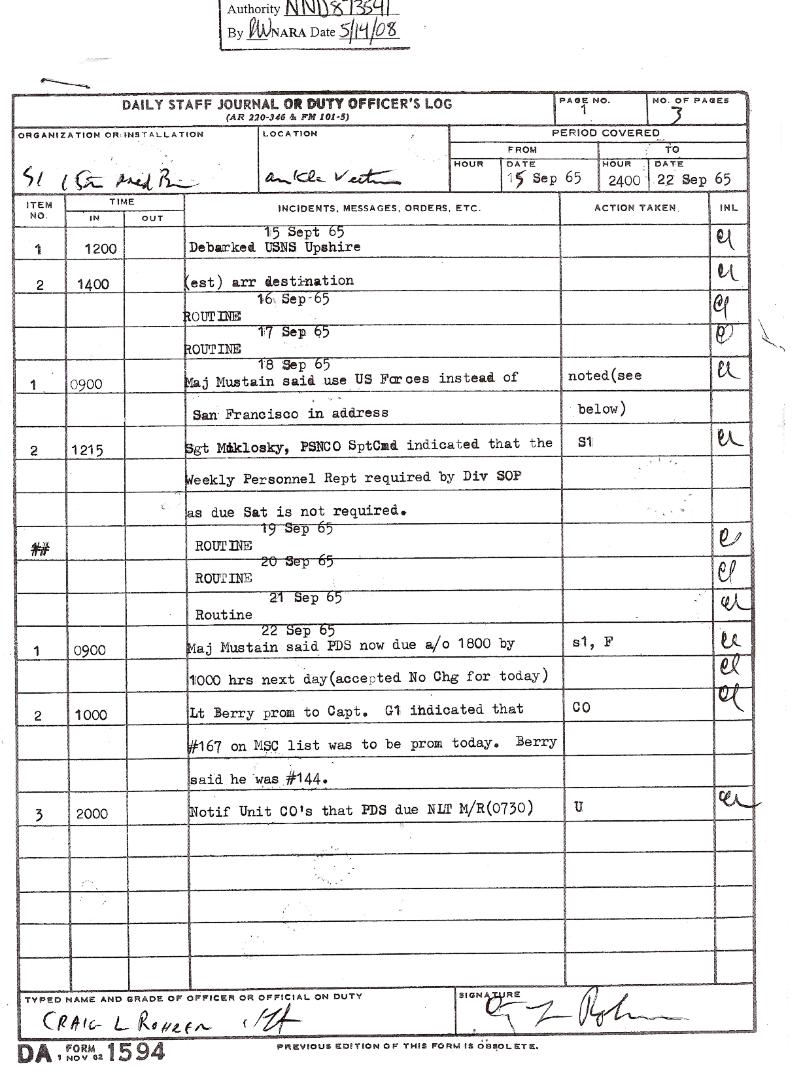 Authority NND873541
By NARA Date 5/14/08
DAILY STAFF JOURNAL OR DUTY OFFICER'S LOG
(AR 220-346 & FM 101-5)
PAGE NO.
1
NO. OF PAGES
3
ORGANIZATION OR INSTALLATION
S1 15th Med Bn
LOCATION
PERIOD COVERED
FROM
TO
HOUR DATE HOUR DATE
15 Sep 65 2400 22 Sep 65
ITEM NO. TIME IN OUT INCIDENTS, MESSAGES, ORDERS, ETC. ACTION TAKEN INL
15 Sept 65
1 1200 Debarked USNS Upshire
2 1400 (est) arr destination
16 Sep 65
ROUTINE
17 Sep 65
ROUTINE
18 Sep 65
1 0900 Maj Mustain said use US Forces instead of noted(see
San Francisco in address below)
2 1215 Sgt Miklosky, PSNCO SptCmd indicated that the S1
Weekly Personnel Rept required by Div SOP
as due Sat is not required.
19 Sep 65
ROUTINE
20 Sep 65
ROUTINE
21 Sep 65
Routine
22 Sep 65
1 0900 Maj Mustain said PDS now due a/o 1800 by s1, F
1000 hrs next day(accepted No Chg for today)
2 1000 Lt Berry prom to Capt. G1 indicated that CO
#167 on MSC list was to be prom today. Berry
said he was #144.
3 2000 Notif Unit CO's that PDS due NLT M/R(0730) U
TYPED NAME AND GRADE OF OFFICER OR OFFICIAL ON DUTY
CRAIG L ROHREN
SIGNATURE
DA FORM 1 NOV 62 1594
PREVIOUS EDITION OF THIS FORM IS OBSOLETE.